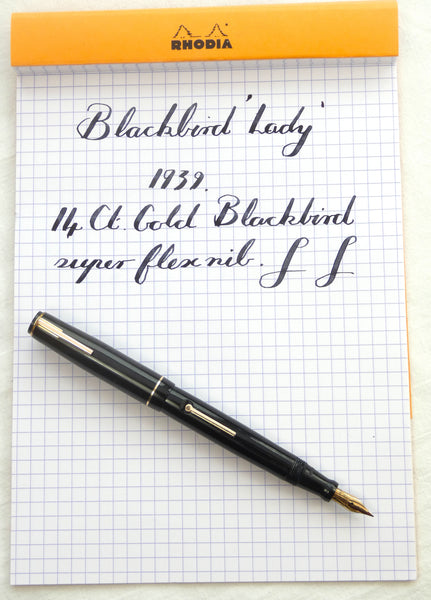 RHODIA
Blackbird 'Lady'
1939.
14 Ct. Gold Blackbird
super flex nib. f f